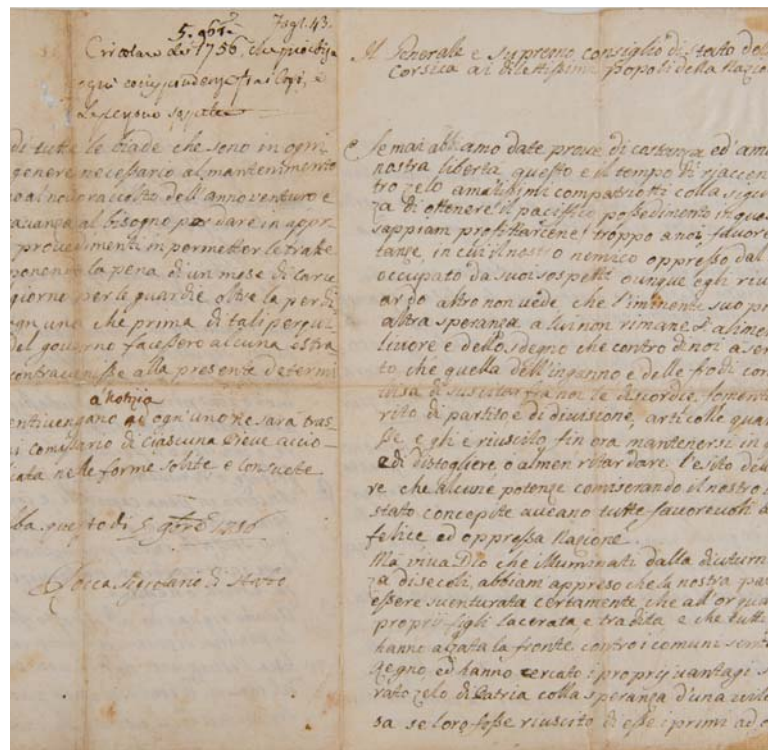 5. 9bre Fogl. 43.
Circolare del 1756, che proibisce
ogni corrispondenza fra i Corsi, e
di tutte le biade che sono in ogni
genere necessario al mantenimento
al novo racolto dell'anno venturo e
avanza al bisogno per dare in appr
provedimenti in permetter le tratte
ponendo la pena di un mese di carce
giorne per le guardie oltre la perdi
ogn'uno che prima di tali perqui
del governo facessero alcuna estra
contravenisse alla presente determi
a notizia
entivengano ad ogn'uno ne sarà tras
comissario di ciascuna Pieve accio
cata nelle forme solite e consuete
questo di 5 9bre 1756
Segretario di Stato
Il Generale e Supremo consiglio di stato del
Corsica ai dilettissimi Popoli della Nazio
Se mai abbiamo date prove di costanza ed amo
nostra libertà questo è il tempo di riaccen
tro zelo amatissimi compatriotti colla sigur
za di ottenere il pacifico possedimento in qua
sappiam profittarcene troppo a noi favore
tanze, in cui il nostro nemico oppresso dal
occupato da suoi sospetti ounque egli riv
ardo altro non vede che l'iminente suo pr
altra speranza a lui non rimane di alimen
livore e dello sdegno che contro di noi a ser
to che quella dell'inganno e delle frodi con
di suscitar fra noi le discordie, foment
rito di partito e di divisione, articolle qua
se egli è riuscito fin ora mantenersi in
e di distogliere, o almen ritardare l'esito del
re che alcune potenze comiserando il nostro
stato concepite aveano tutte favorevoli a
felice ed oppressa Nazione.
Ma viva Dio che illuminati dalla diuturn
za di secoli, abbiam appreso che la nostra pa
essere sventurata certamente, che all'or qua
proprij figli lacerata, e tradita e che tutti
hanno alzata la fronte contro i comuni senti
regno, ed hanno cercato i proprij vantagi s
rato zelo di Patria colla speranza d'una vile
sa se loro fosse riuscito di esse i primi ad o